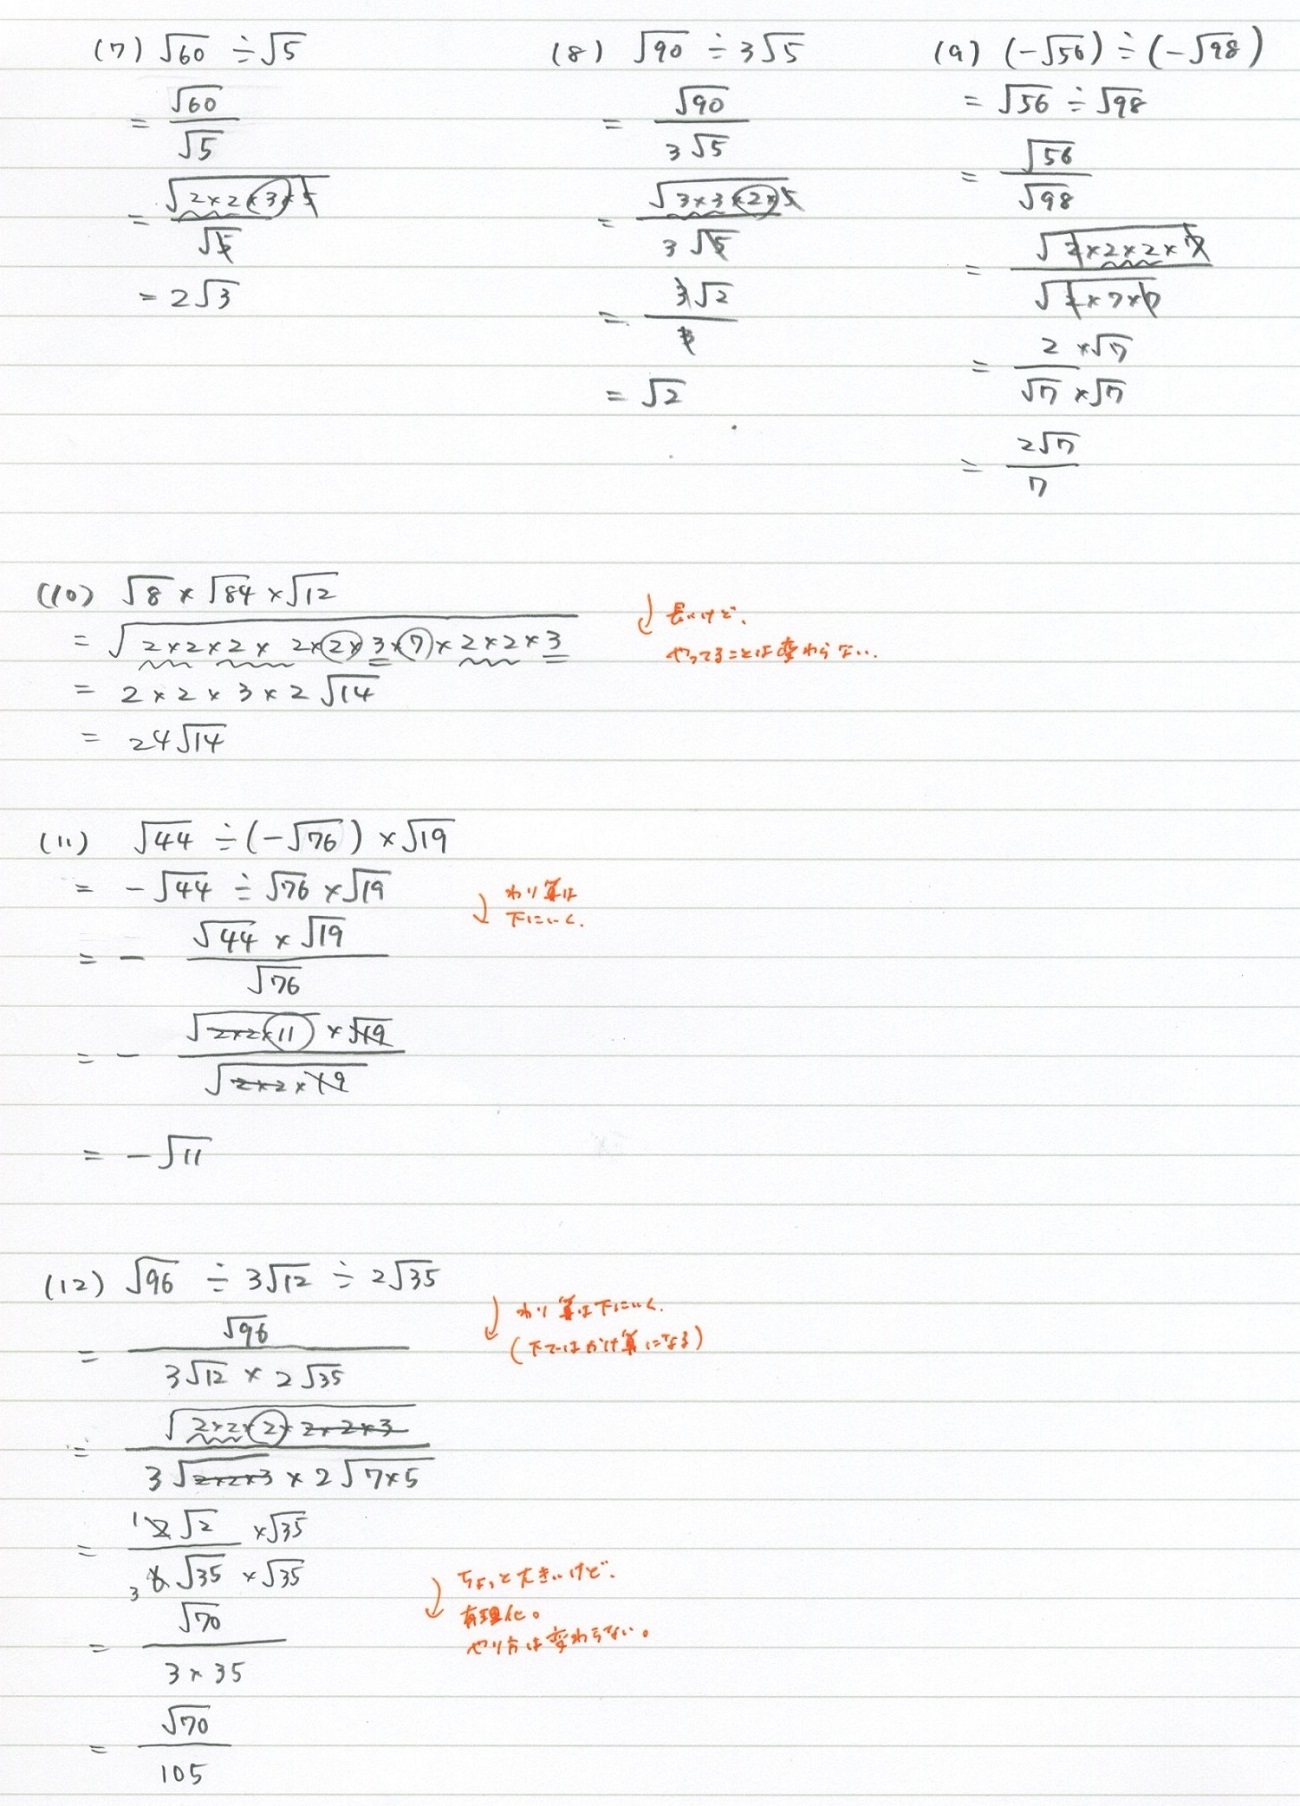 (7) √60 ÷ √5
= √60 / √5
= √(2×2×3×5) / √5
= 2√3
(8) √90 ÷ 3√5
= √90 / 3√5
= √(3×3×2×5) / 3√5
= 3√2 / 3
= √2
(9) (-√56) ÷ (-√98)
= √56 ÷ √98
= √56 / √98
= √(2×2×2×7) / √(2×7×7)
= 2×√7 / √7×√7
= 2√7 / 7
(10) √8 × √84 × √12
= √(2×2×2× 2×2×3×7×2×2×3)
= 2×2×3×2√14
= 24√14
長いけど、
やってることは変わらない.
(11) √44 ÷ (-√76) × √19
= -√44 ÷ √76 × √19
= - √44 × √19 / √76
= - √(2×2×11) × √19 / √(2×2×19)
= -√11
わり算は
下にいく.
(12) √96 ÷ 3√12 ÷ 2√35
= √96 / 3√12 × 2√35
= √(2×2×2×2×2×3) / 3√(2×2×3) × 2√(7×5)
= 1 2√2 ×√35 / 3 6√35 ×√35
= √70 / 3×35
= √70 / 105
わり算は下にいく.
(下ではかけ算になる)
ちょっと大きいけど.
有理化。
やり方は変わらない。